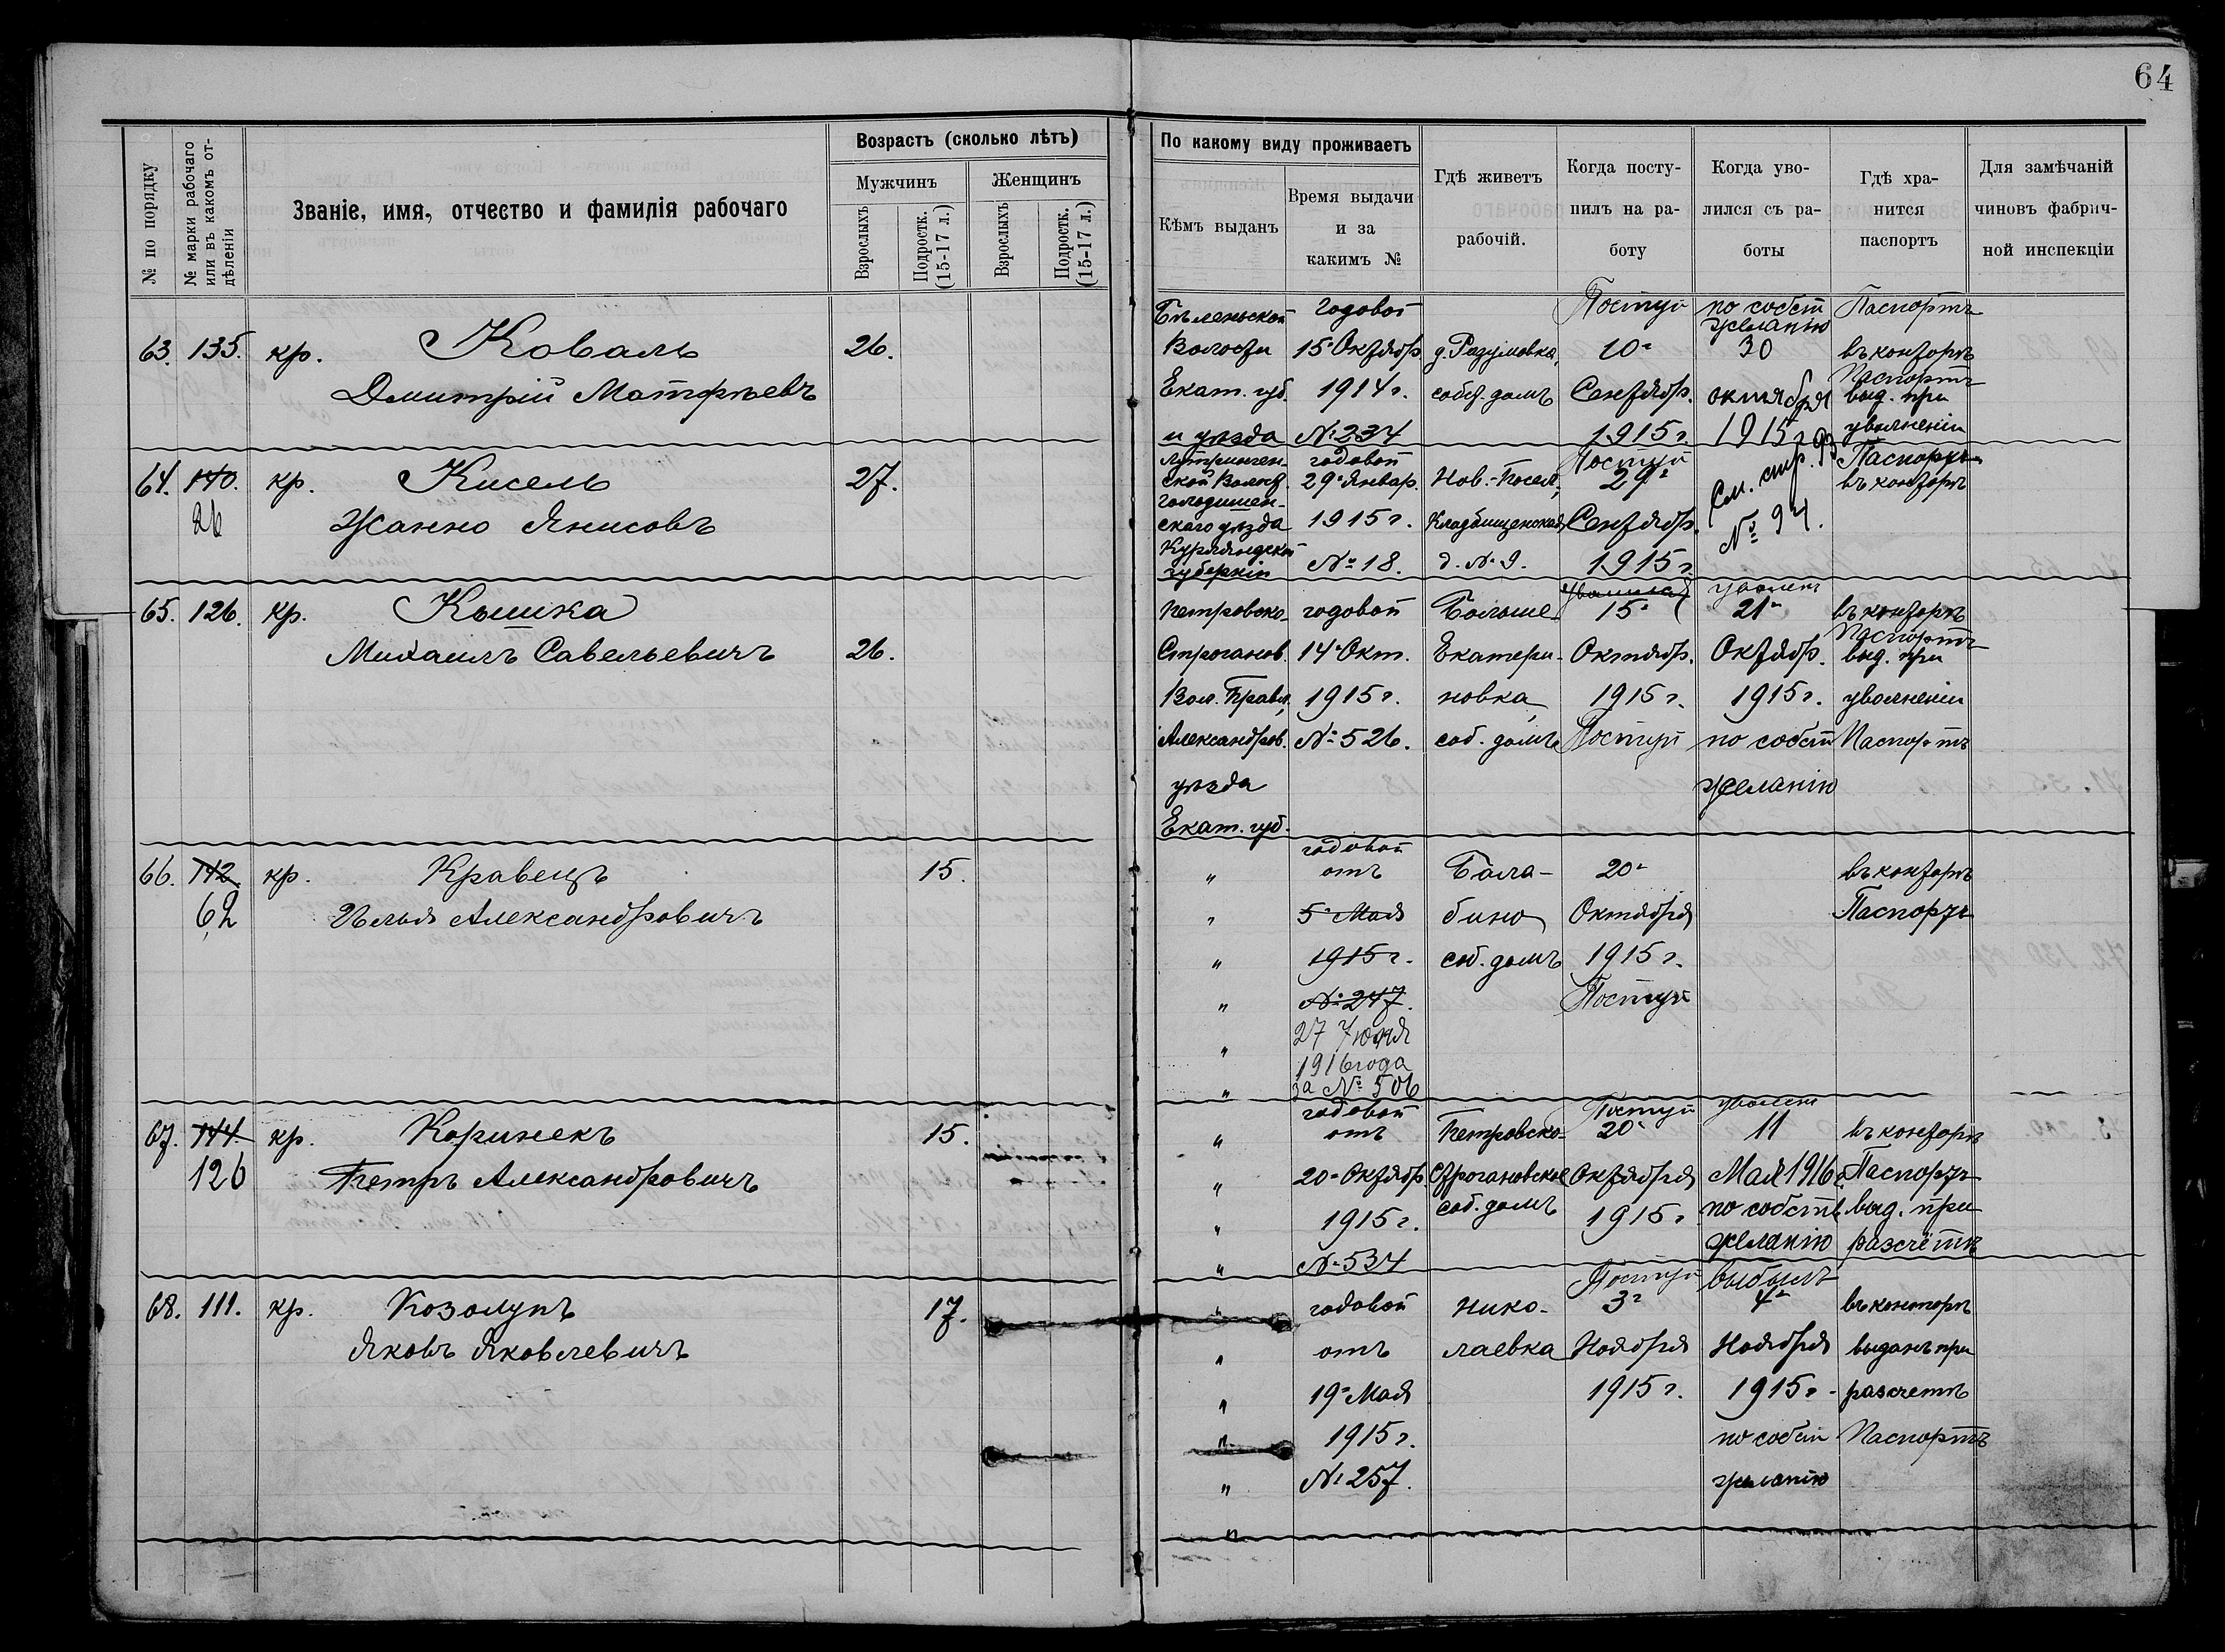 64
№ по порядку
№ марки рабочаго
или въ какомъ от-
дѣленіи
Званіе, имя, отчество и фамилія рабочаго
Возрастъ (сколько лѣтъ)
Мужчинъ
Женщинъ
Взрослыхъ
Подростк.
(15-17 л.)
Взрослыхъ
Подростк.
(15-17 л.)
По какому виду проживаетъ
Кѣмъ выданъ
Время выдачи
и за
какимъ №
Гдѣ живетъ
рабочій.
Когда посту-
пилъ на ра-
боту
Когда уво-
лился съ ра-
боты
Гдѣ хра-
нится
паспортъ
Для замѣчаній
чиновъ фабрич-
ной инспекціи
63. 135. кр. Коваль 26.
Дмитрій Матфѣевъ
Бѣленьской
Волости
Екат. губ.
и уѣзда
Годовой
15 Октябр.
1914 г.
№ 234
д. Разумовка,
собст. домъ
Поступ
10
Сентябр.
1915 г.
по собст
желанію
30
октября
1915 г
Паспортъ
въ конторѣ
Паспортъ
выд. при
увольненіи
64. 140. кр. Кисель 27.
26
Жанно Янисовъ
ской Волост.
ского уѣзда
Курляндской
губерніи
годовой
29 Январ.
1915 г.
№ 18.
Нов.-Посел.,
Кладбищенская
д. № 9.
Поступ
29
Сентябр.
1915 г.
См. стр. 93
№ 94.
Паспортъ
въ конторѣ
65. 126. кр. Кышка
Михаилъ Савельевичъ 26.
Петровско-
Строганов.
Вол. Правл.,
Александров.
уѣзда
Екат. губ.
годовой
14 Окт.
1915 г.
№ 526.
Больше-
Екатери-
новка,
соб. домъ
уволился
15
Октябр.
1915 г.
Поступ
уволен
21
Октябр.
1915 г.
по собст
желанію
въ конторѣ
Паспортъ
выд. при
увольненіи
Паспортъ
66. 142. кр. Кравецъ 15.
62
Илья Александровичъ
"
"
"
"
"
"
годовой
отъ
5 Мая
1915 г.
№ 247.
27 Июня
1916 года
за № 506
Бала-
бино
соб. домъ
20
Октября
1915 г.
Поступ
въ конторѣ
Паспортъ
67. 144. кр. Коринекъ 15.
126
Петръ Александровичъ
"
"
"
"
годовой
отъ
20 Октябр.
1915 г.
№ 534
Петровско-
Строгановское
соб. домъ
Поступ
20
Октября
1915 г.
уволен
11
Мая 1916 г.
по собств
желанію
въ конторѣ
Паспортъ
выд. при
разсчётѣ
68. 111. кр. Козолупъ 17.
Яковъ Яковлевичъ
"
"
"
"
"
"
годовой
отъ
19 Мая
1915 г.
№ 257.
Нико-
лаевка
Поступ
3
Ноября
1915 г.
выбылъ
4
Ноября
1915 г.
по собст
желанію
въ конторѣ
выданъ при
разсчетѣ
Паспортъ